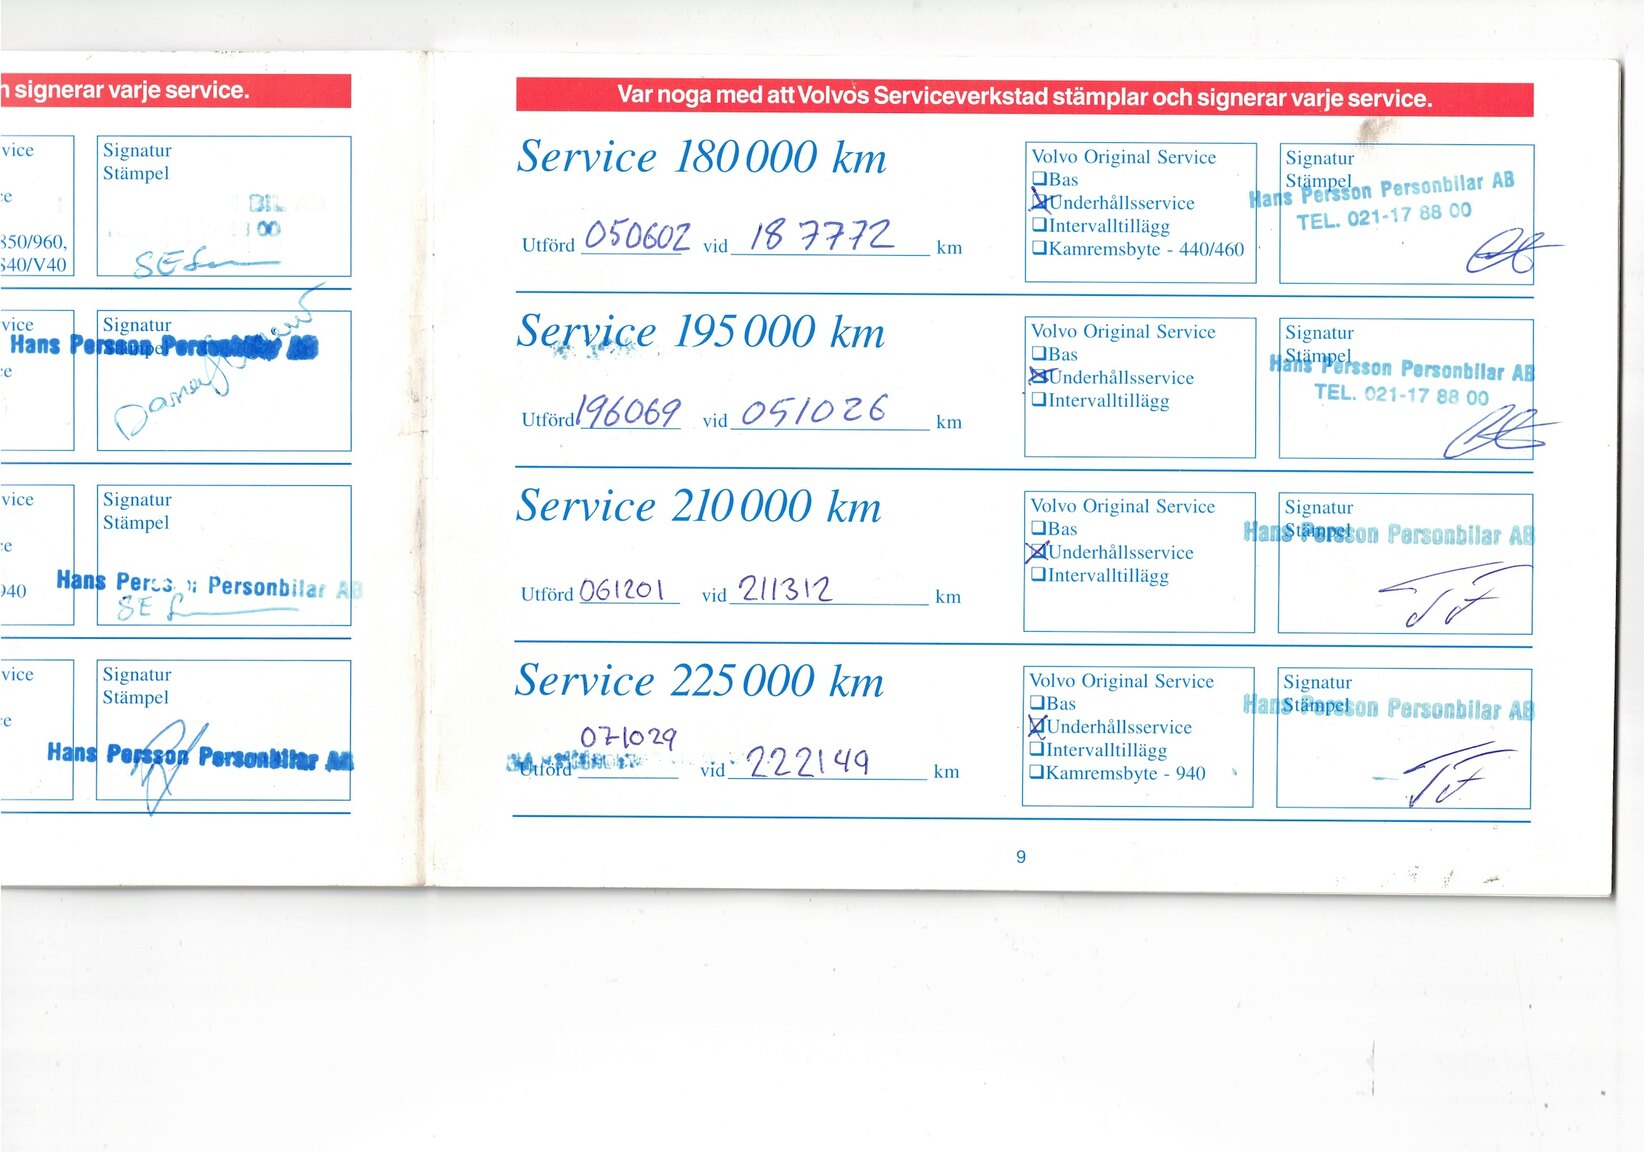 n signerar varje service.
vice
ce
850/960,
S40/V40
Signatur
Stämpel
BIL AB
00
SE
vice
ce
Signatur
Stämpel
Hans Persson Personbilar AB
vice
ce
940
Signatur
Stämpel
Hans Persson Personbilar AB
SE
vice
ce
Signatur
Stämpel
Hans Persson Personbilar AB
Var noga med att Volvos Serviceverkstad stämplar och signerar varje service.
Service 180 000 km
Utförd 050602 vid 187772 km
Volvo Original Service
Bas
Underhållsservice
Intervalltillägg
Kamremsbyte - 440/460
Signatur
Stämpel
Hans Persson Personbilar AB
TEL. 021-17 88 00
Service 195 000 km
Utförd 196069 vid 051026 km
Volvo Original Service
Bas
Underhållsservice
Intervalltillägg
Signatur
Stämpel
Hans Persson Personbilar AB
TEL. 021-17 88 00
Service 210 000 km
Utförd 061201 vid 211312 km
Volvo Original Service
Bas
Underhållsservice
Intervalltillägg
Signatur
Stämpel
Hans Persson Personbilar AB
TF
Service 225 000 km
071029
Utförd vid 222149 km
Volvo Original Service
Bas
Underhållsservice
Intervalltillägg
Kamremsbyte - 940
Signatur
Stämpel
Hans Persson Personbilar AB
TF
9